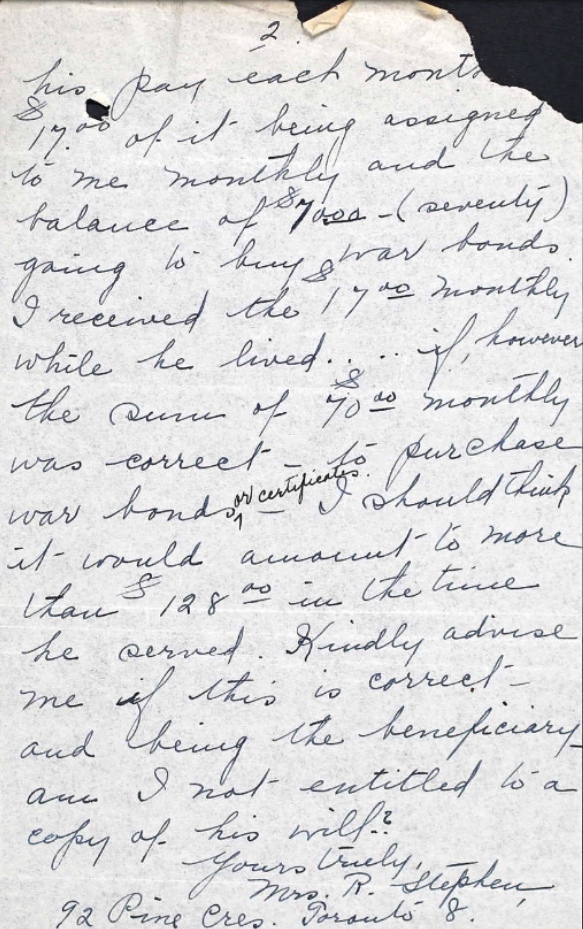 2.
his pay each month
$17.00 of it being assigned
to me monthly and the
balance of $70.00 - (seventy)
going to buy war bonds.
I received the $17.00 monthly
while he lived. . . . if, however
the sum of $70.00 monthly
was correct - to purchase
war bonds or certificates. - I should think
it would amount to more
than $128.00 in the time
he served. Kindly advise
me if this is correct -
and being the beneficiary
am I not entitled to a
copy of his will?
Yours truly,
Mrs. R. Stephen,
92 Pine Cres. Toronto 8.